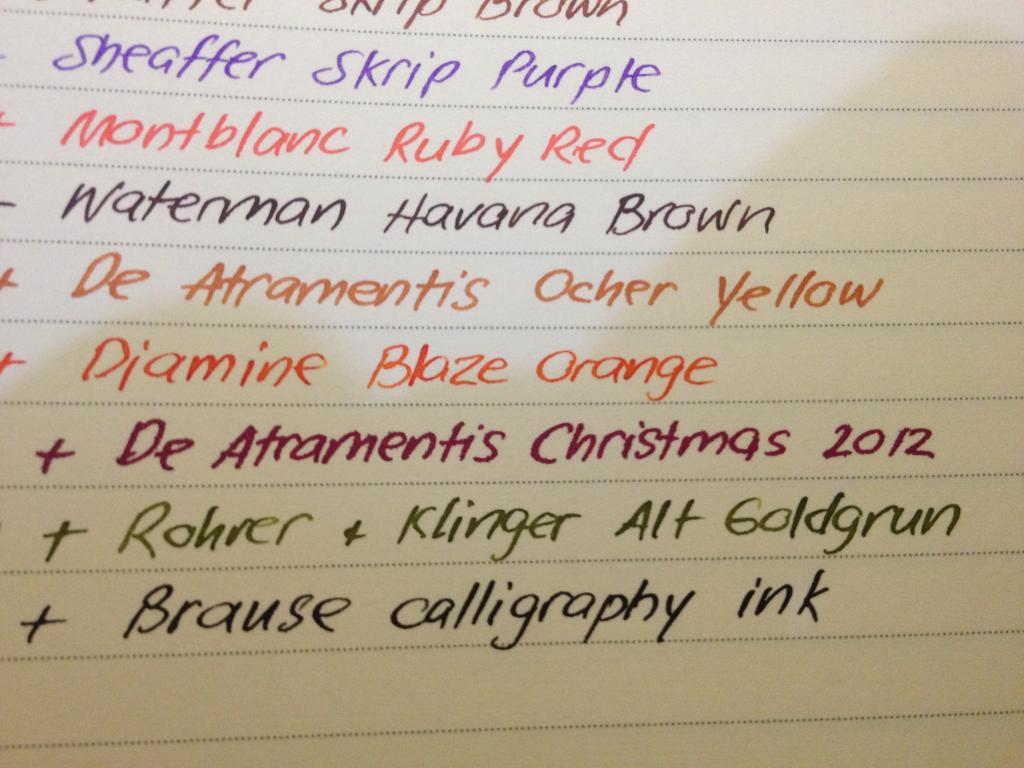 Skrip Brown
- Sheaffer Skrip Purple
+ Montblanc Ruby Red
- Waterman Havana Brown
+ De Atramentis Ocher Yellow
+ Diamine Blaze Orange
+ De Atramentis Christmas 2012
+ Rohrer + Klinger Alt Goldgrun
+ Brause calligraphy ink